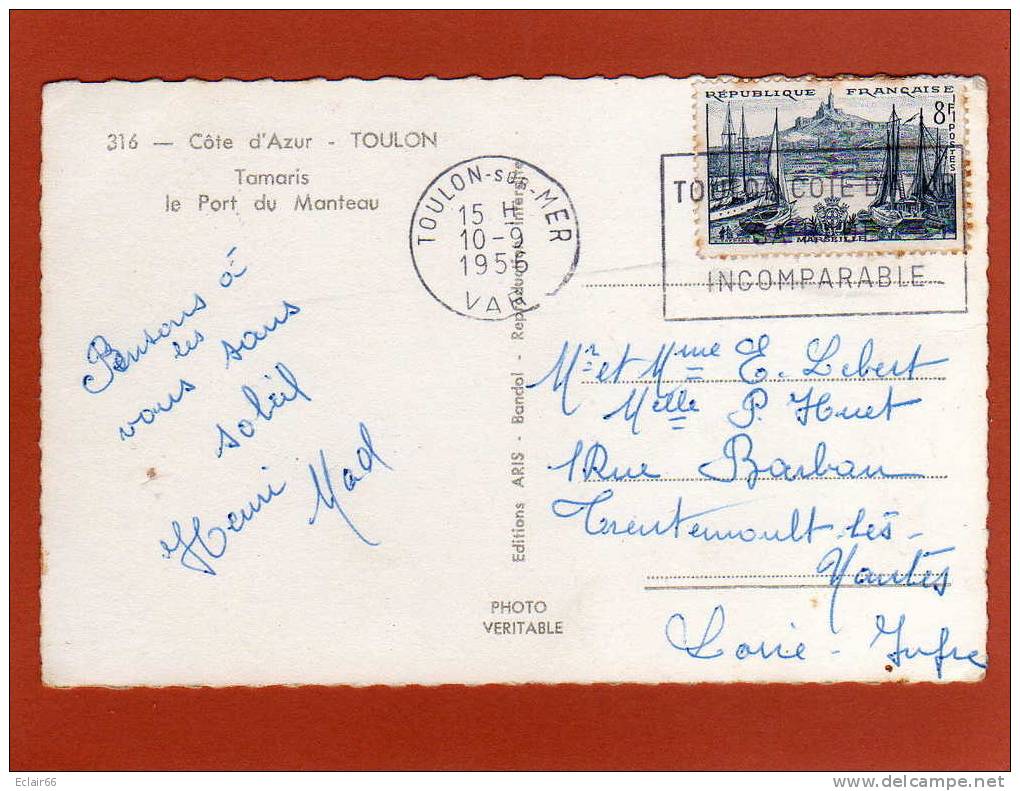 316 — Côte d'Azur - TOULON
Tamaris
le Port du Manteau
Pensons à
vous
les
sans
soleil
Henri
Mad
TOULON-SUR-MER
15 H
10-9
1955
VAR
Editions ARIS - Bandol - Reproduction interdite
PHOTO
VERITABLE
RÉPUBLIQUE FRANÇAISE
8F
POSTES
MARSEILLE
TOULON COTE D'AZUR
INCOMPARABLE
Mr et Mme E. Lebert
Melle P. Huet
1 Rue Barbau
Trentemoult-les-
Nantes
Loire-Infre
Eclair66
www.delcampe.net